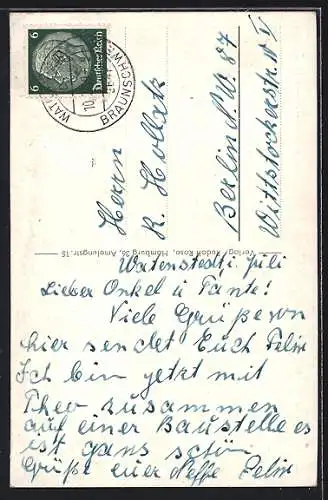 6 Deutsches Reich 6
WAT
BRAUNSCHW
10.
Herrn
R. Hollak
Berlin N.W. 87
Wittstockerstr
Verlag Rudolf Rosa, Homburg 36, Amelungstr. 15
Watenstedt i. Juli
Lieber Onkel u Tante!
Viele Grüße von
hier sendet Euch Felix
Ich bin jetzt mit
Theo zusammen
auf einer Baustelle es
ist ganz schön
Grüße euer Neffe Felix